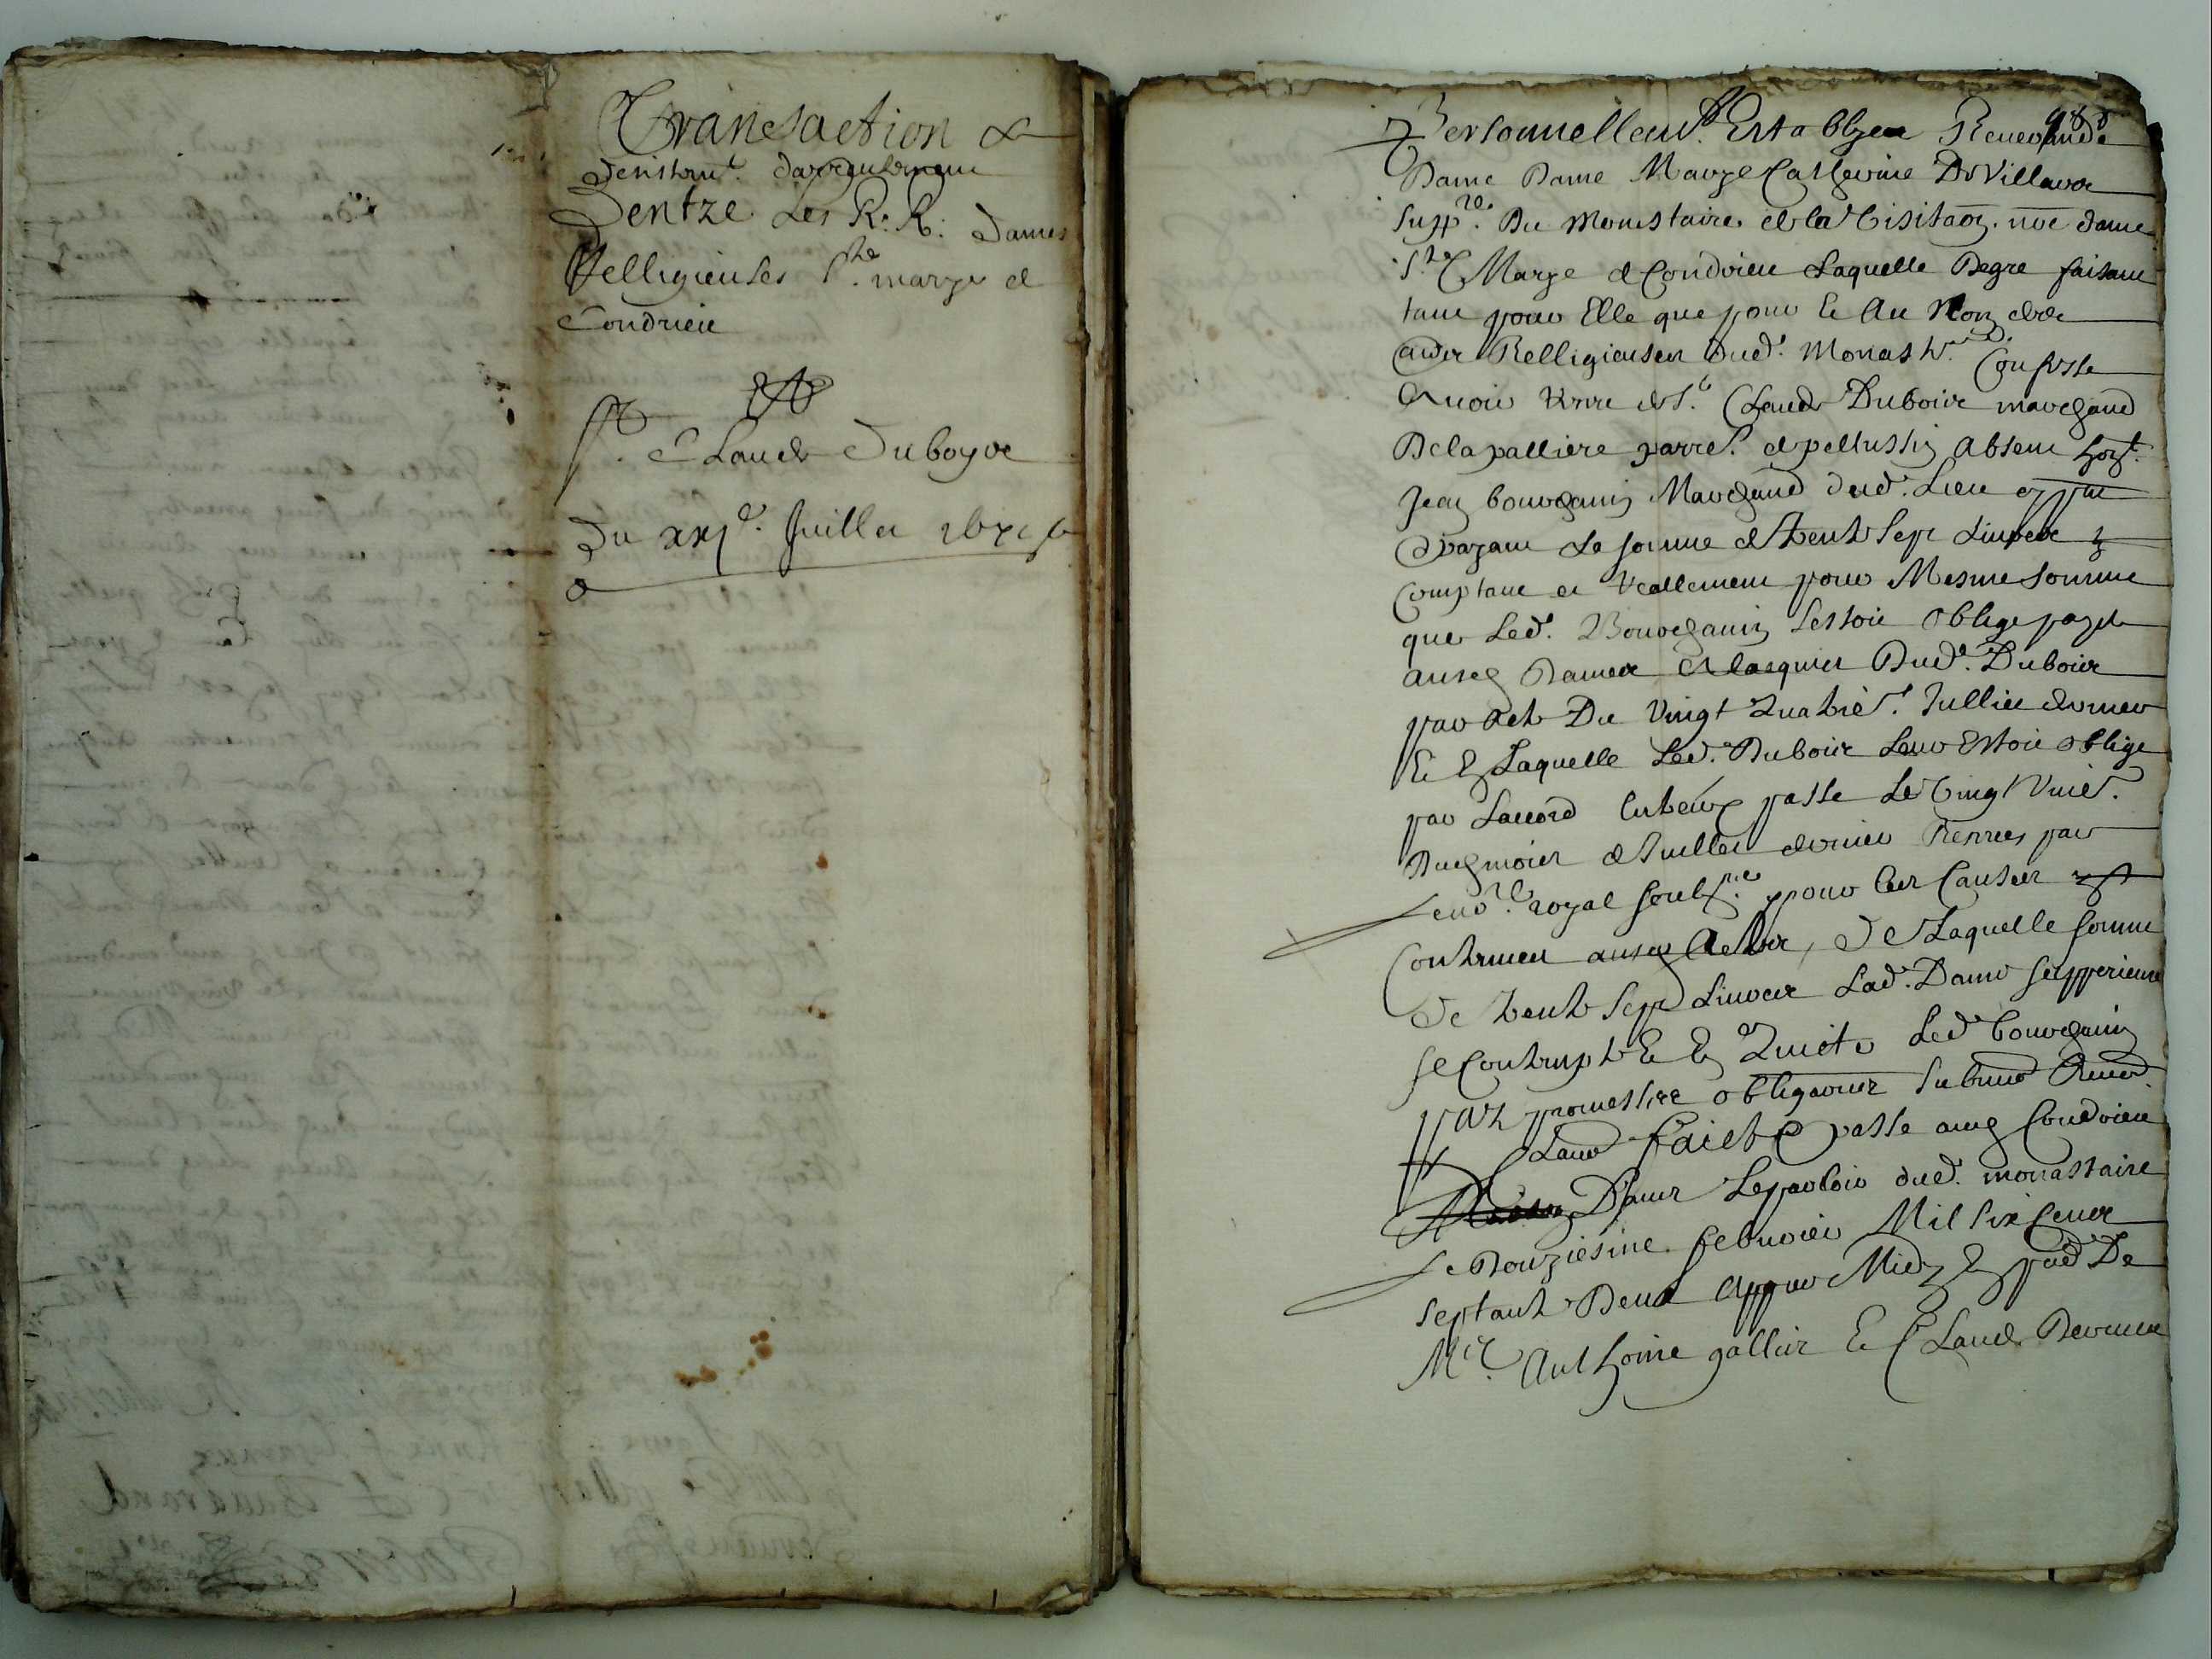 Transaction &
desistmt. darrentement
Dentre Les R. R. Dames
Relligieuses Ste. marye de
Condrieu
Et
Sr. Claude Duboys
Du xxje. Juillet 167
Personnellemt. Establye Reverande
Dame Dame Marye Catherine De Villars
Suppre. Du Monestaire de la Visitaon. nre dame
Ste Marye de Condrieu Laquelle de gre faisant
tant pour Elle que pour et Au Nom des
aues Relligieuses dud. Monastre. Confesse
Avoir Receu de Sr. Claude Dubois marchand
De la palliere parres. de pellussin Absent
Jean bourchanin Marchand dud. Lieu
payant La somme de trente Sept Livres
Comptant et reallement pour Mesme somme
que Led. Bourchanin sestoit Oblige payer
ausd Dames et lacquict Dud. Dubois
par Acte Du Vingt quatres. Jullict dernier
Et Laquelle Led. Dubois Leur Estoit oblige
par Laccord entreux passe Le Vingt Unie.
Dud mois de Juillet dernier Receus par
Le nore. royal soubsne. pour les Causes
Contenues ausd Actes, de Laquelle somme
De trente sept Livres Lad. Dame supperieure
se Contente Et En Quicte Led bourchanin
par promesses obligaons submis Renond.
Faict & passe aud Condrieu
Dans Le parloir dud. monastaire
Le Douziesme febvrier Mil six Cents
septante Deux Appres Midy En pnce De
Mre. Anthoine gallie Et Claude